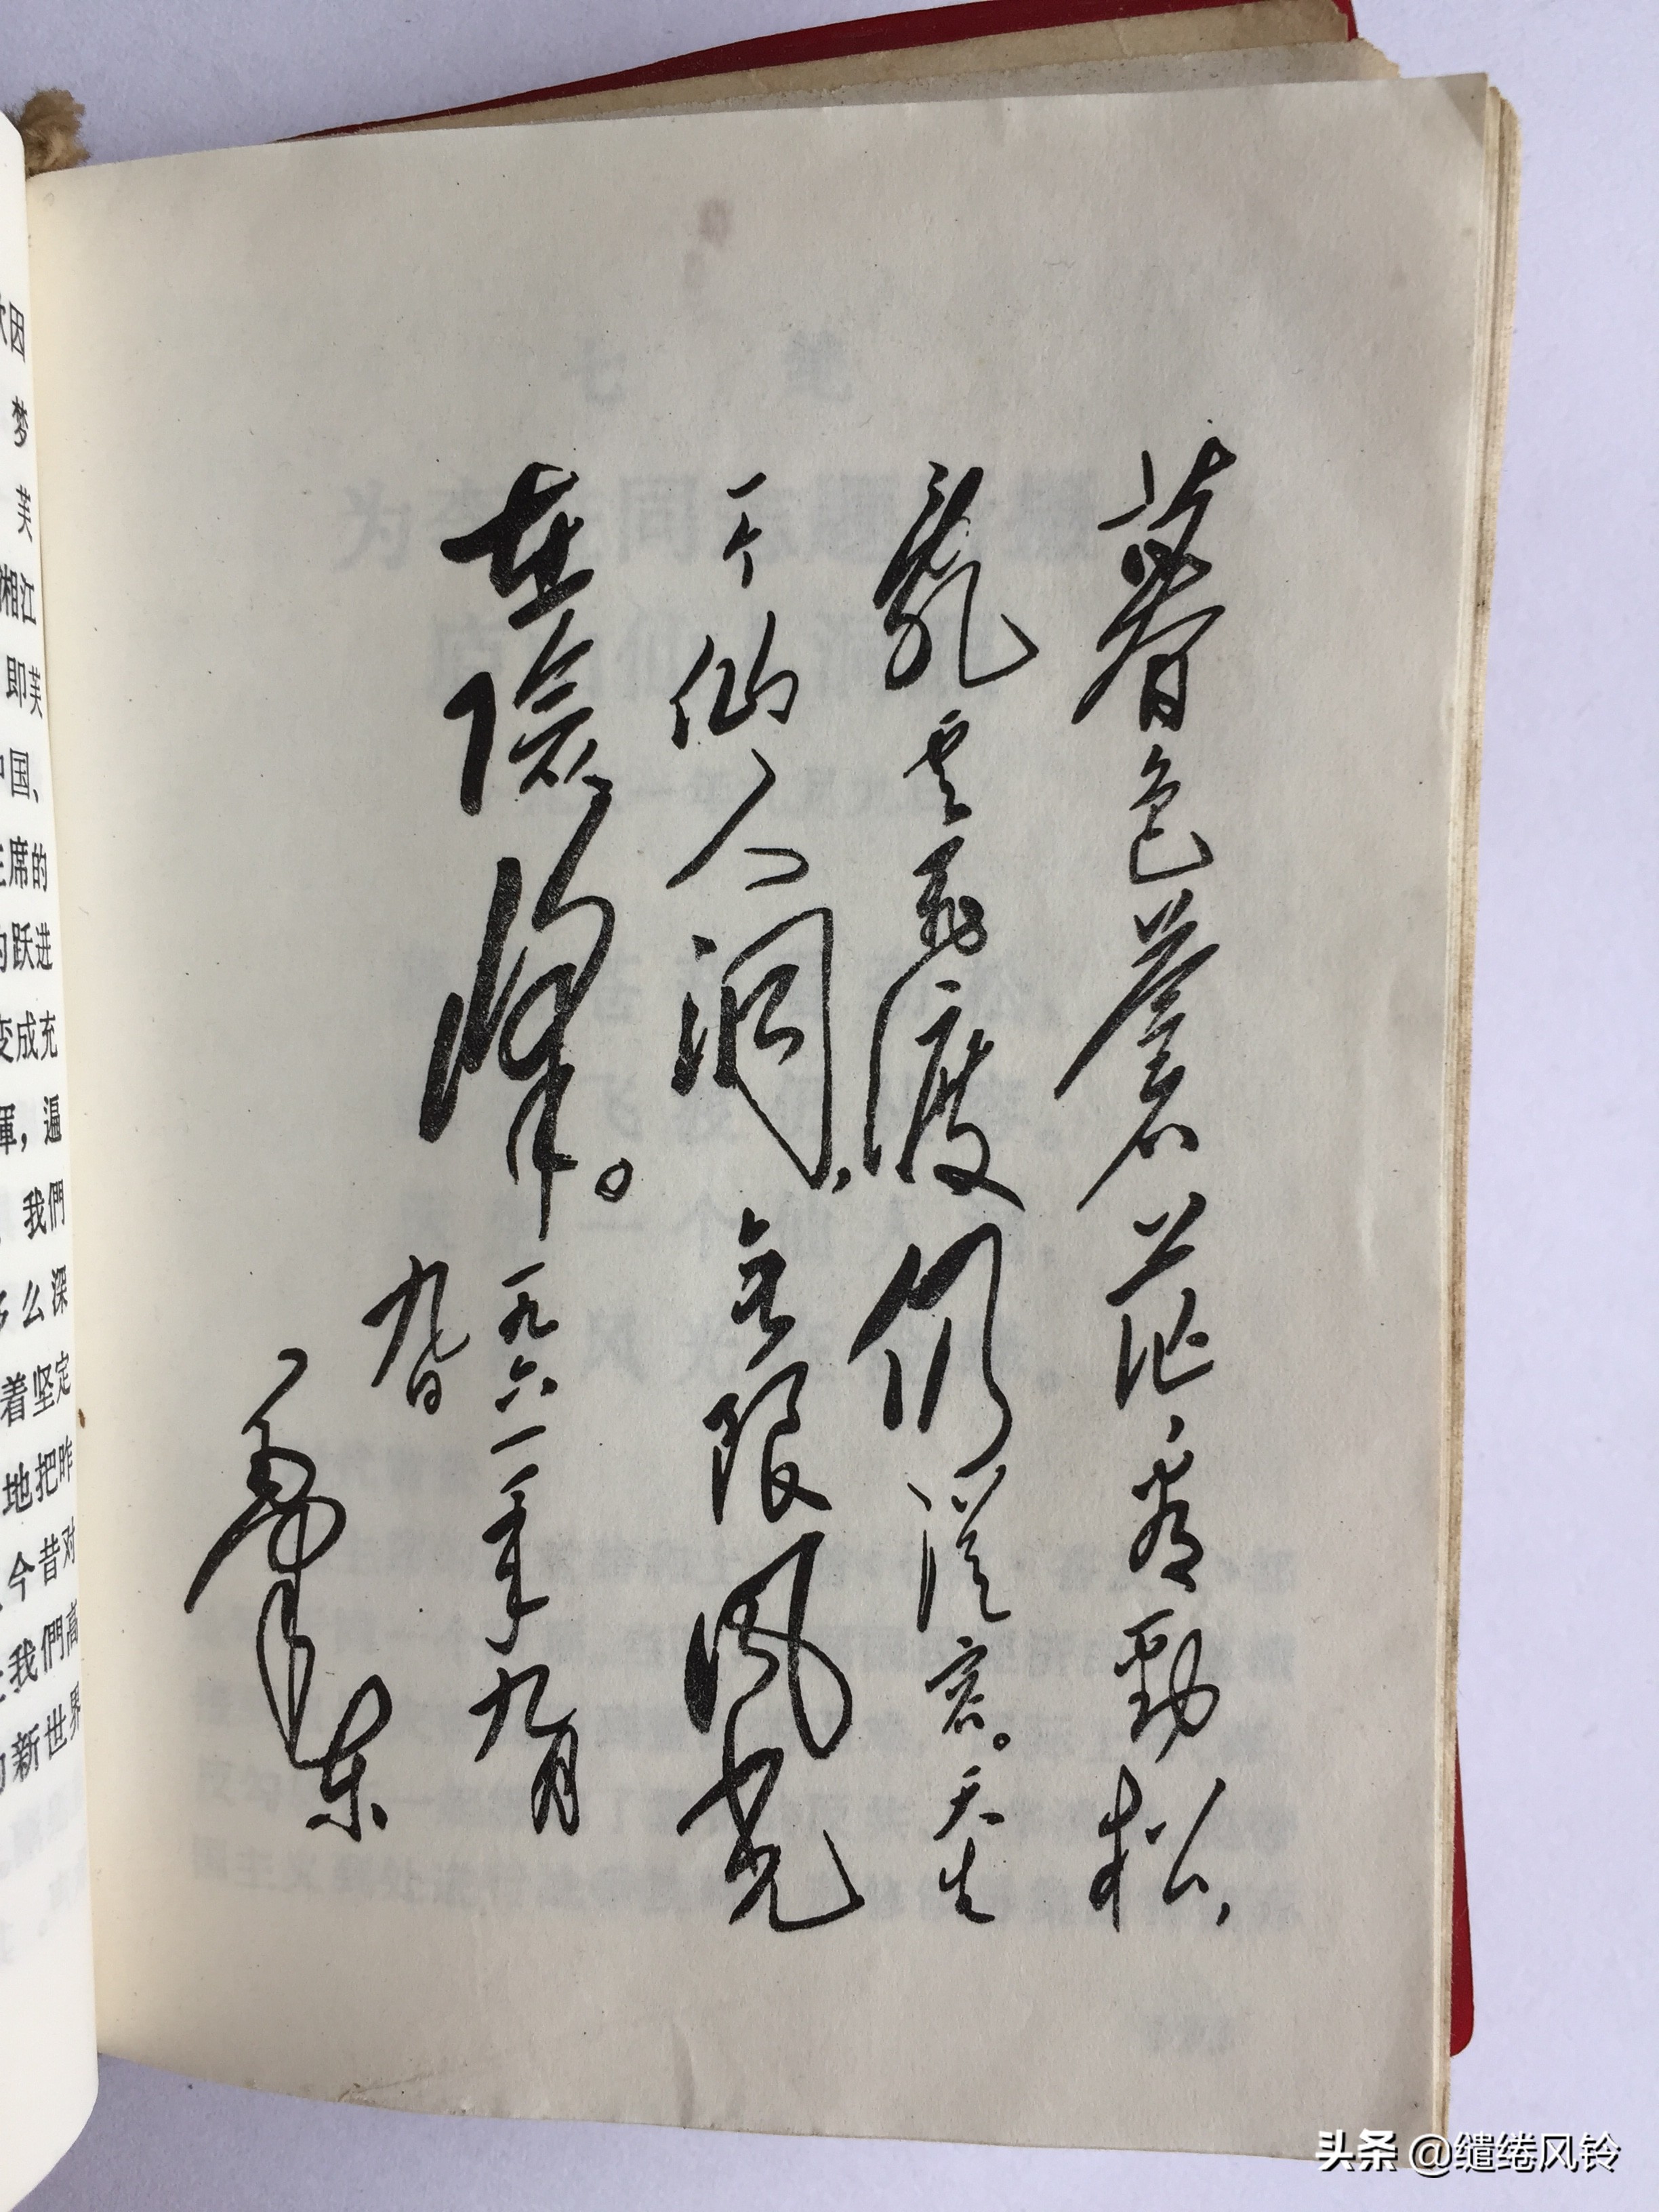 暮色蒼茫看勁松，
亂云飛渡仍從容。天生
一个仙人洞，无限風光
在險峰。一九六一年九月
九日
毛泽东
因
梦
芙
湘江
即芙
中国、
主席的
的跃进
变成充
輝，遍
我們
多么深
着坚定
地把昨
今昔对
我們高
新世界
头条 @缱绻风铃